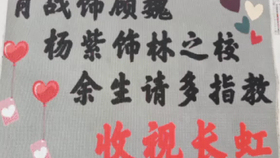 肖战饰顾魏
杨紫饰林之校
余生请多指教
收视长虹